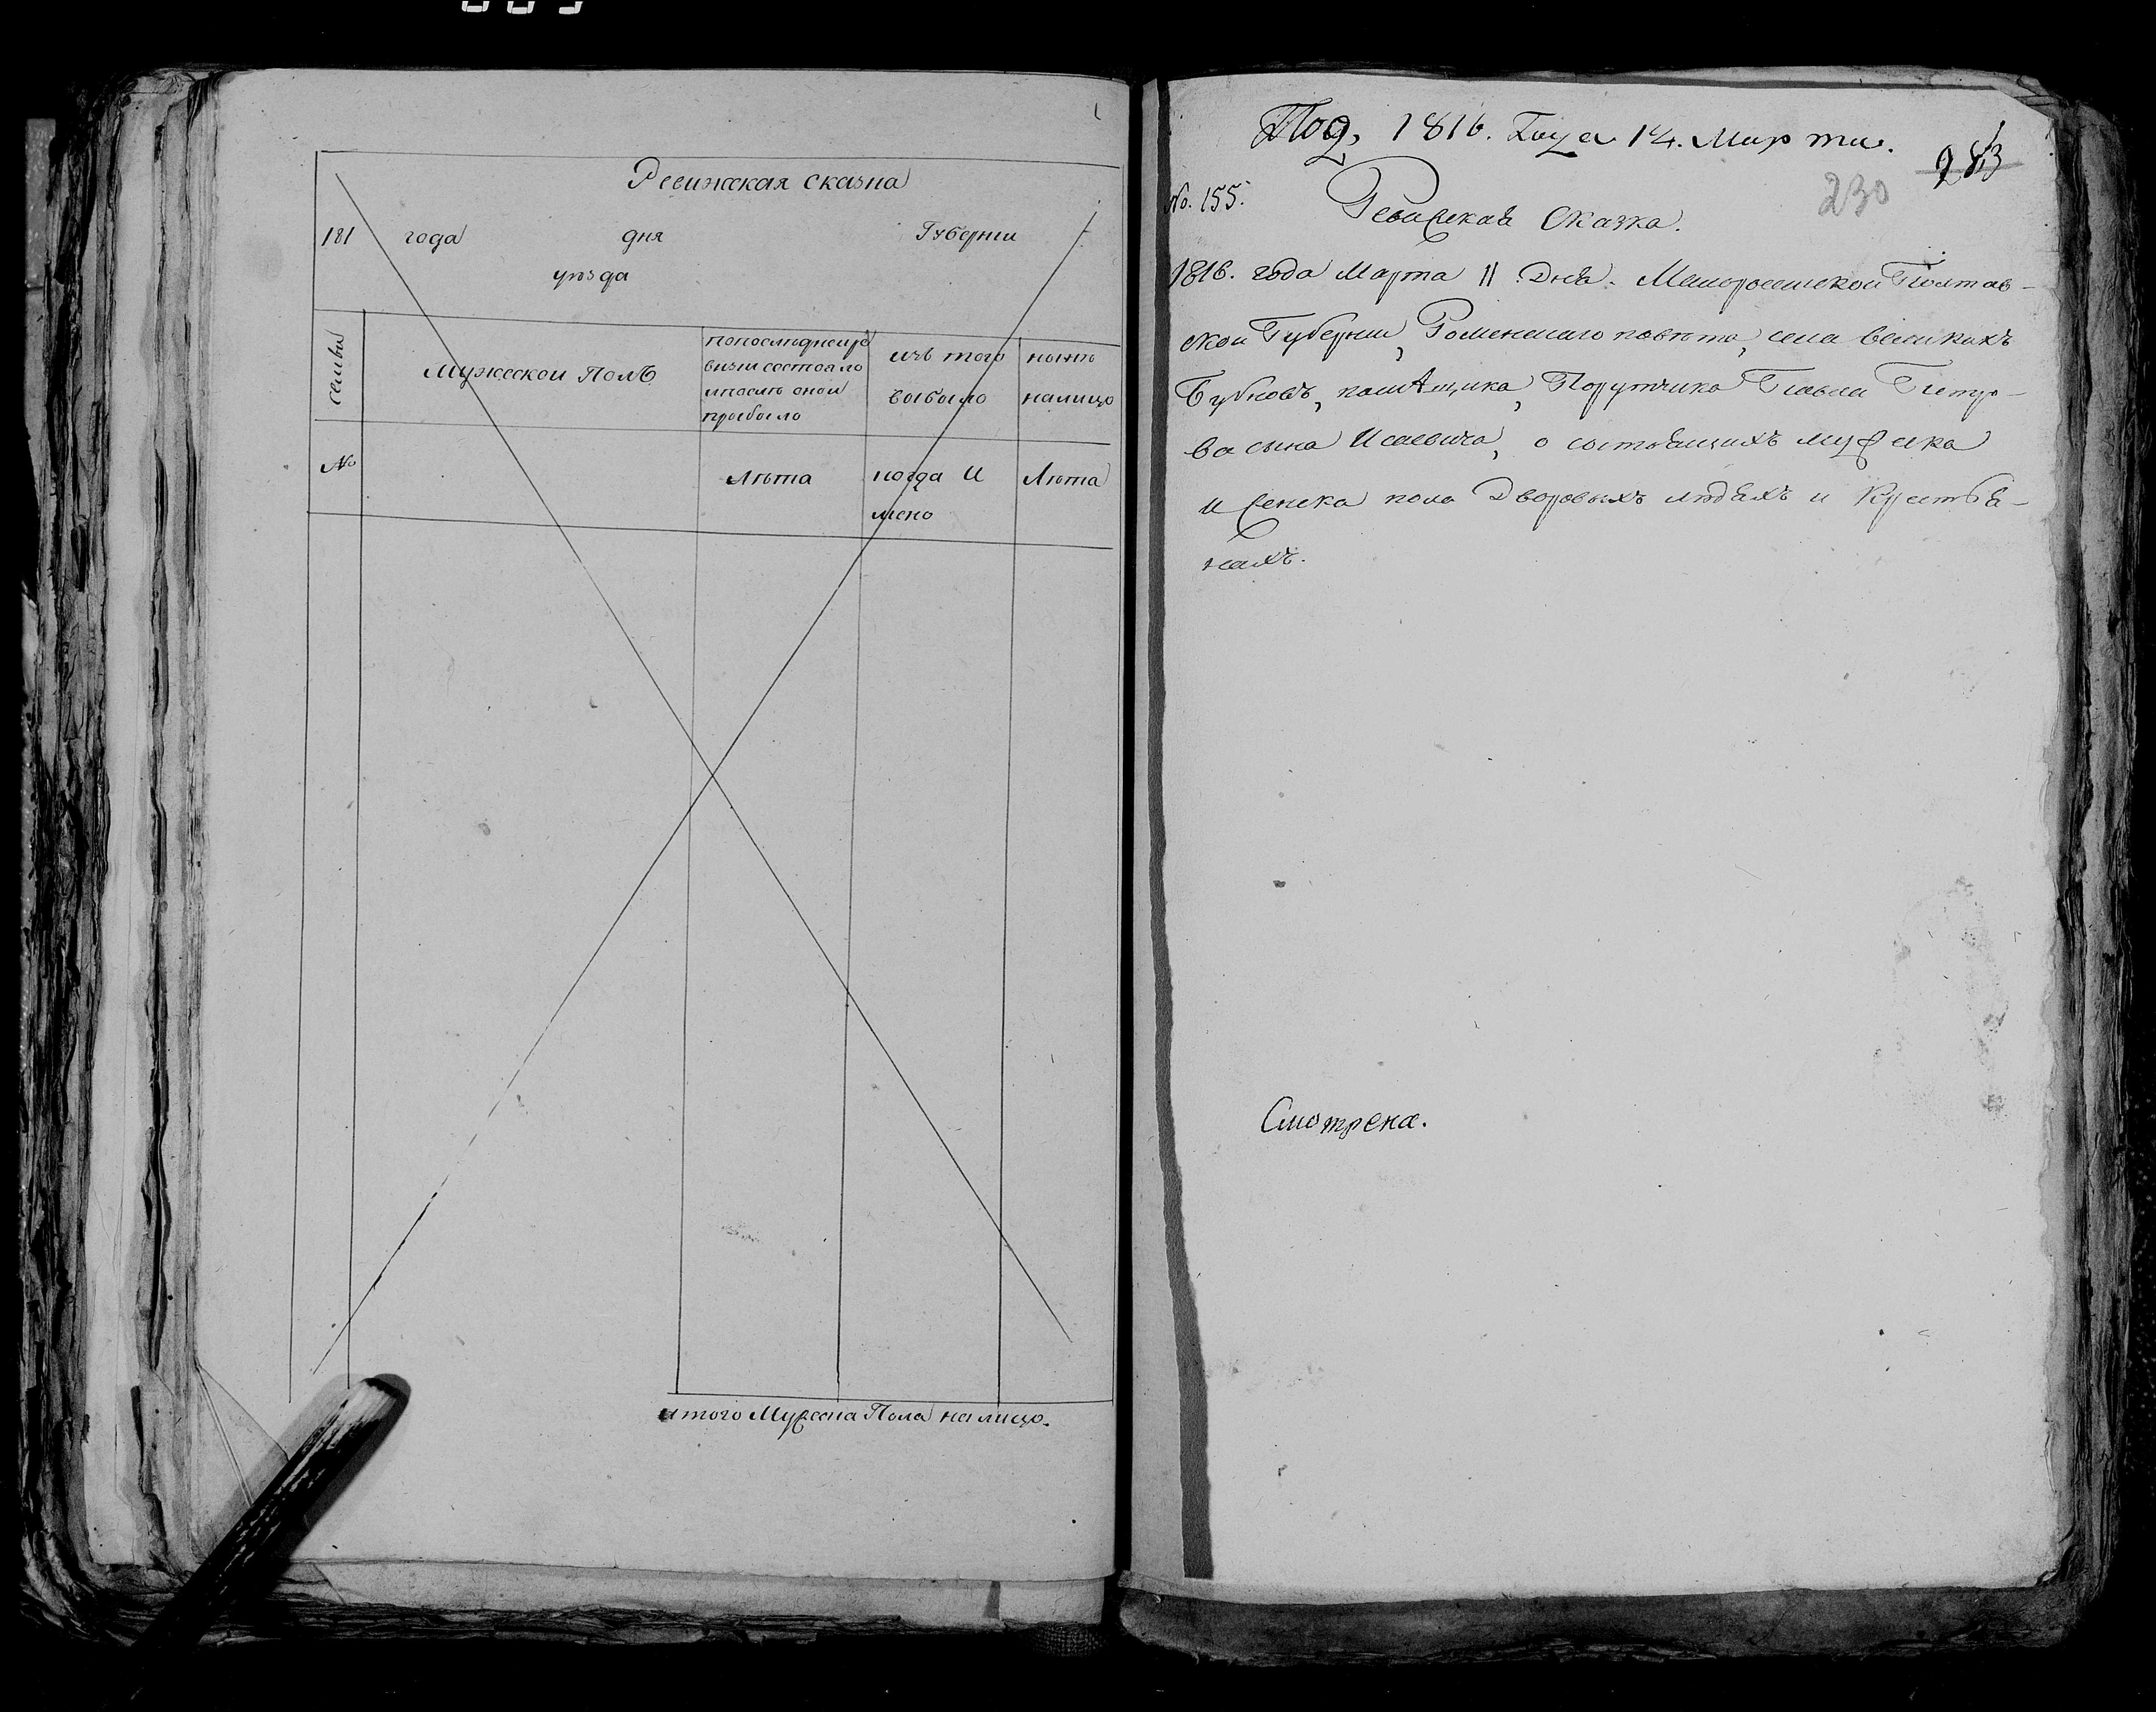 Ревижская сказка
181 года дня Губернии
уѣзда
семьи
Мужеской Полъ
попоследнейре
визии состояло
ипосле оной
прибыло
изъ того
выбыло
ныне
налицо
№
Лѣта
когда И
мено
Лѣта
итого Мужеска Пола налицо.
Под, 1816. Года 14. Марта.
283
230
No. 155.
Ревижская Сказка.
1816. года Марта 11 Дня. Малоросийской Полтав-
ской Губернии, Роменского повѣта, села великихъ
Бубновъ, помѣщика, Порутчика Павла Петро-
ва сына Исаевича, о состоящихъ мужеска
и женска пола Дворовыхъ людяхъ и Крестья-
нахъ.
Смотрена.